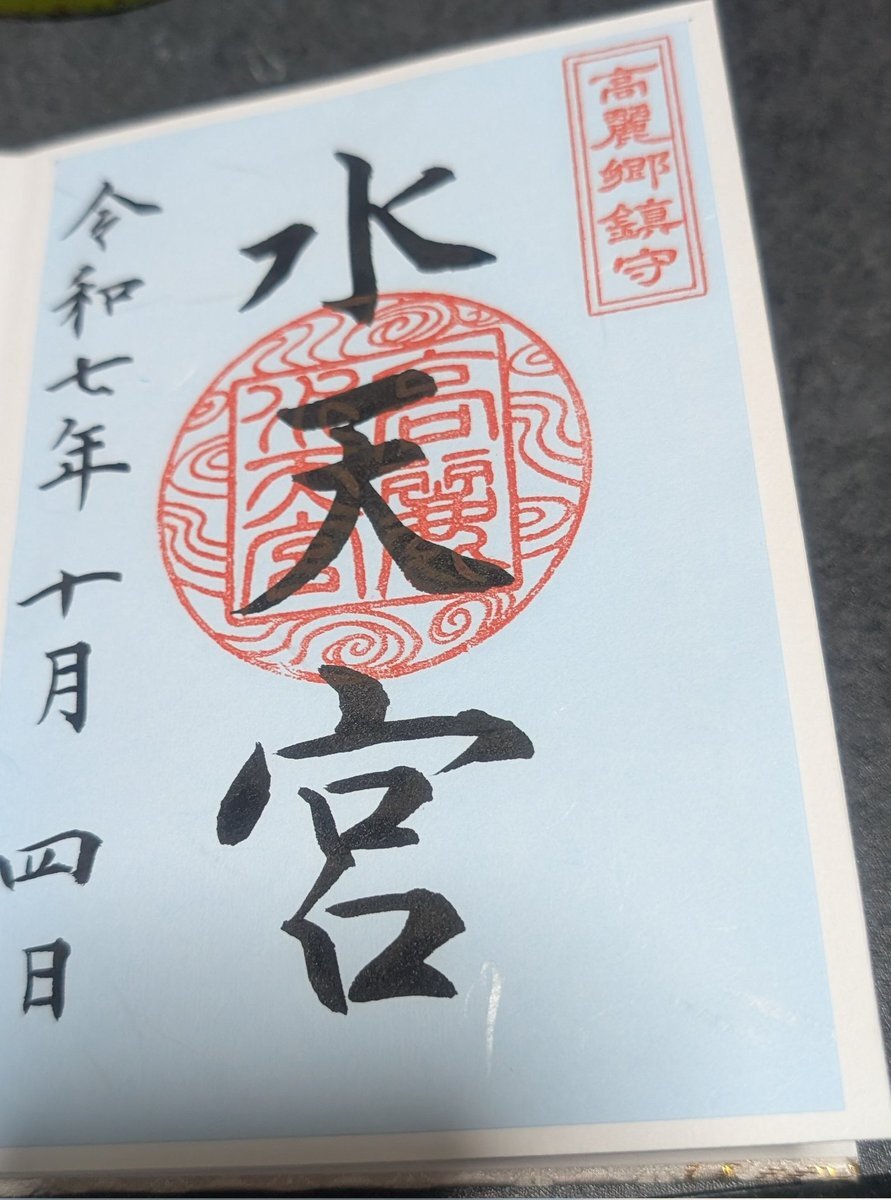 高麗郷鎮守
水天宮
高麗
水天宮
令和七年十月四日